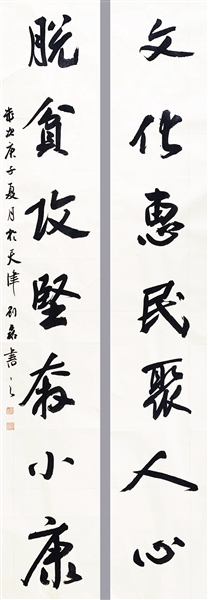 文化惠民聚人心
脱貧攻堅奔小康
歲次庚子夏月於天津刘磊書之